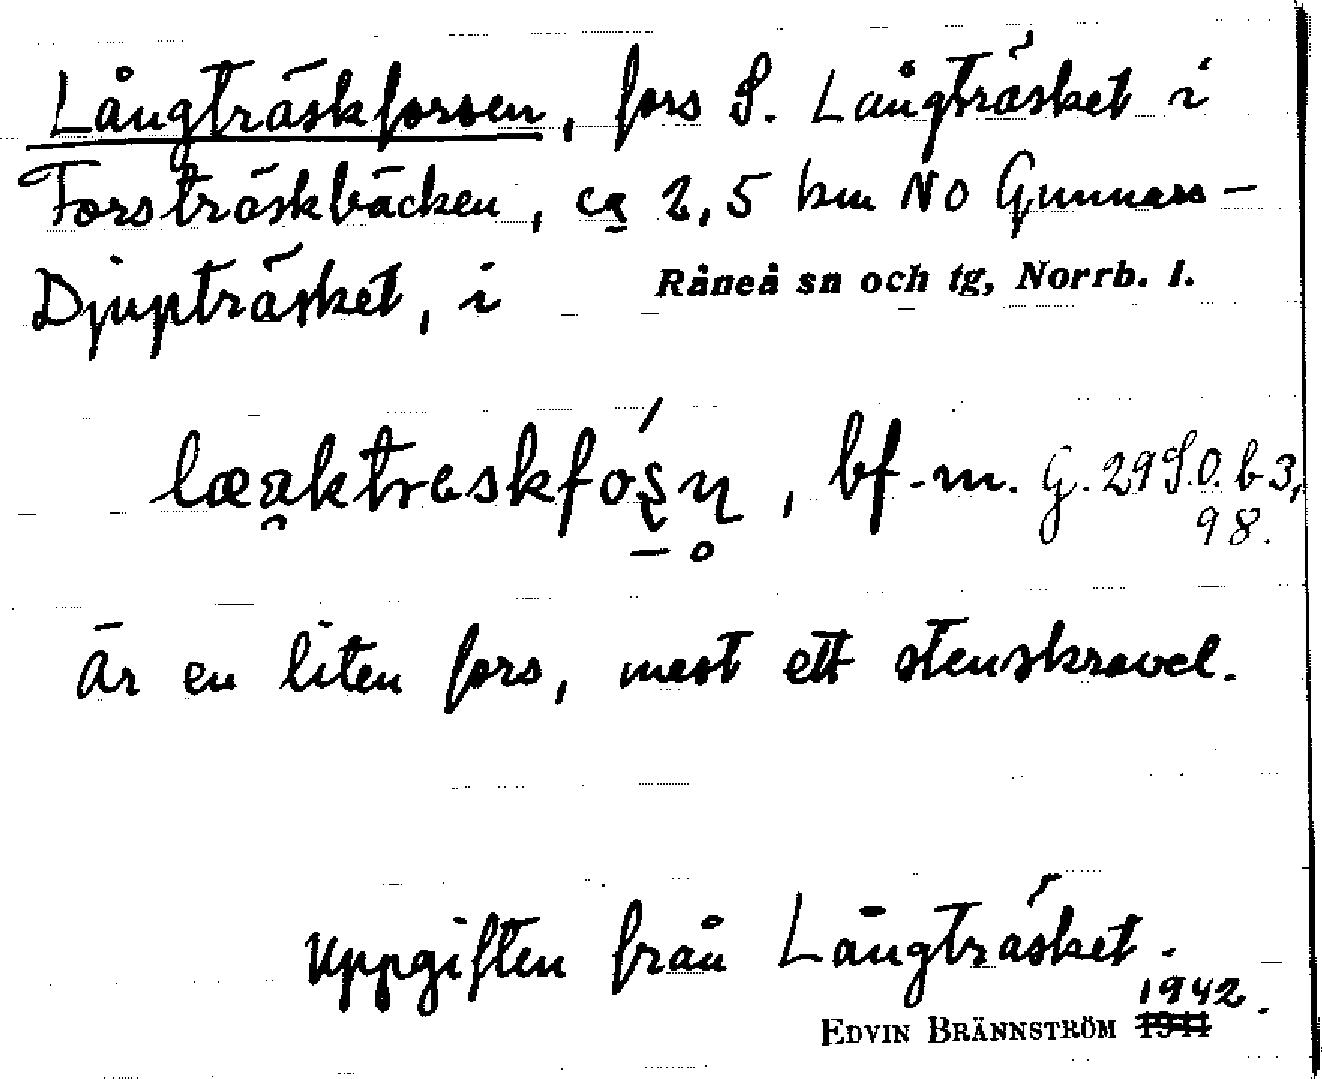 Långträskforsen, fors S. Långträsket i
Forsträskbäcken, ca 2,5 km NO Gunnars-
Djupträsket, i Råneå sn och tg, Norrb. l.
bf. m. G. 29 S.O. b 3,
98.
Är en liten fors, mest ett stenskravel.
Uppgiften från Långträsket.
1942.
EDVIN BRÄNNSTRÖM 1941